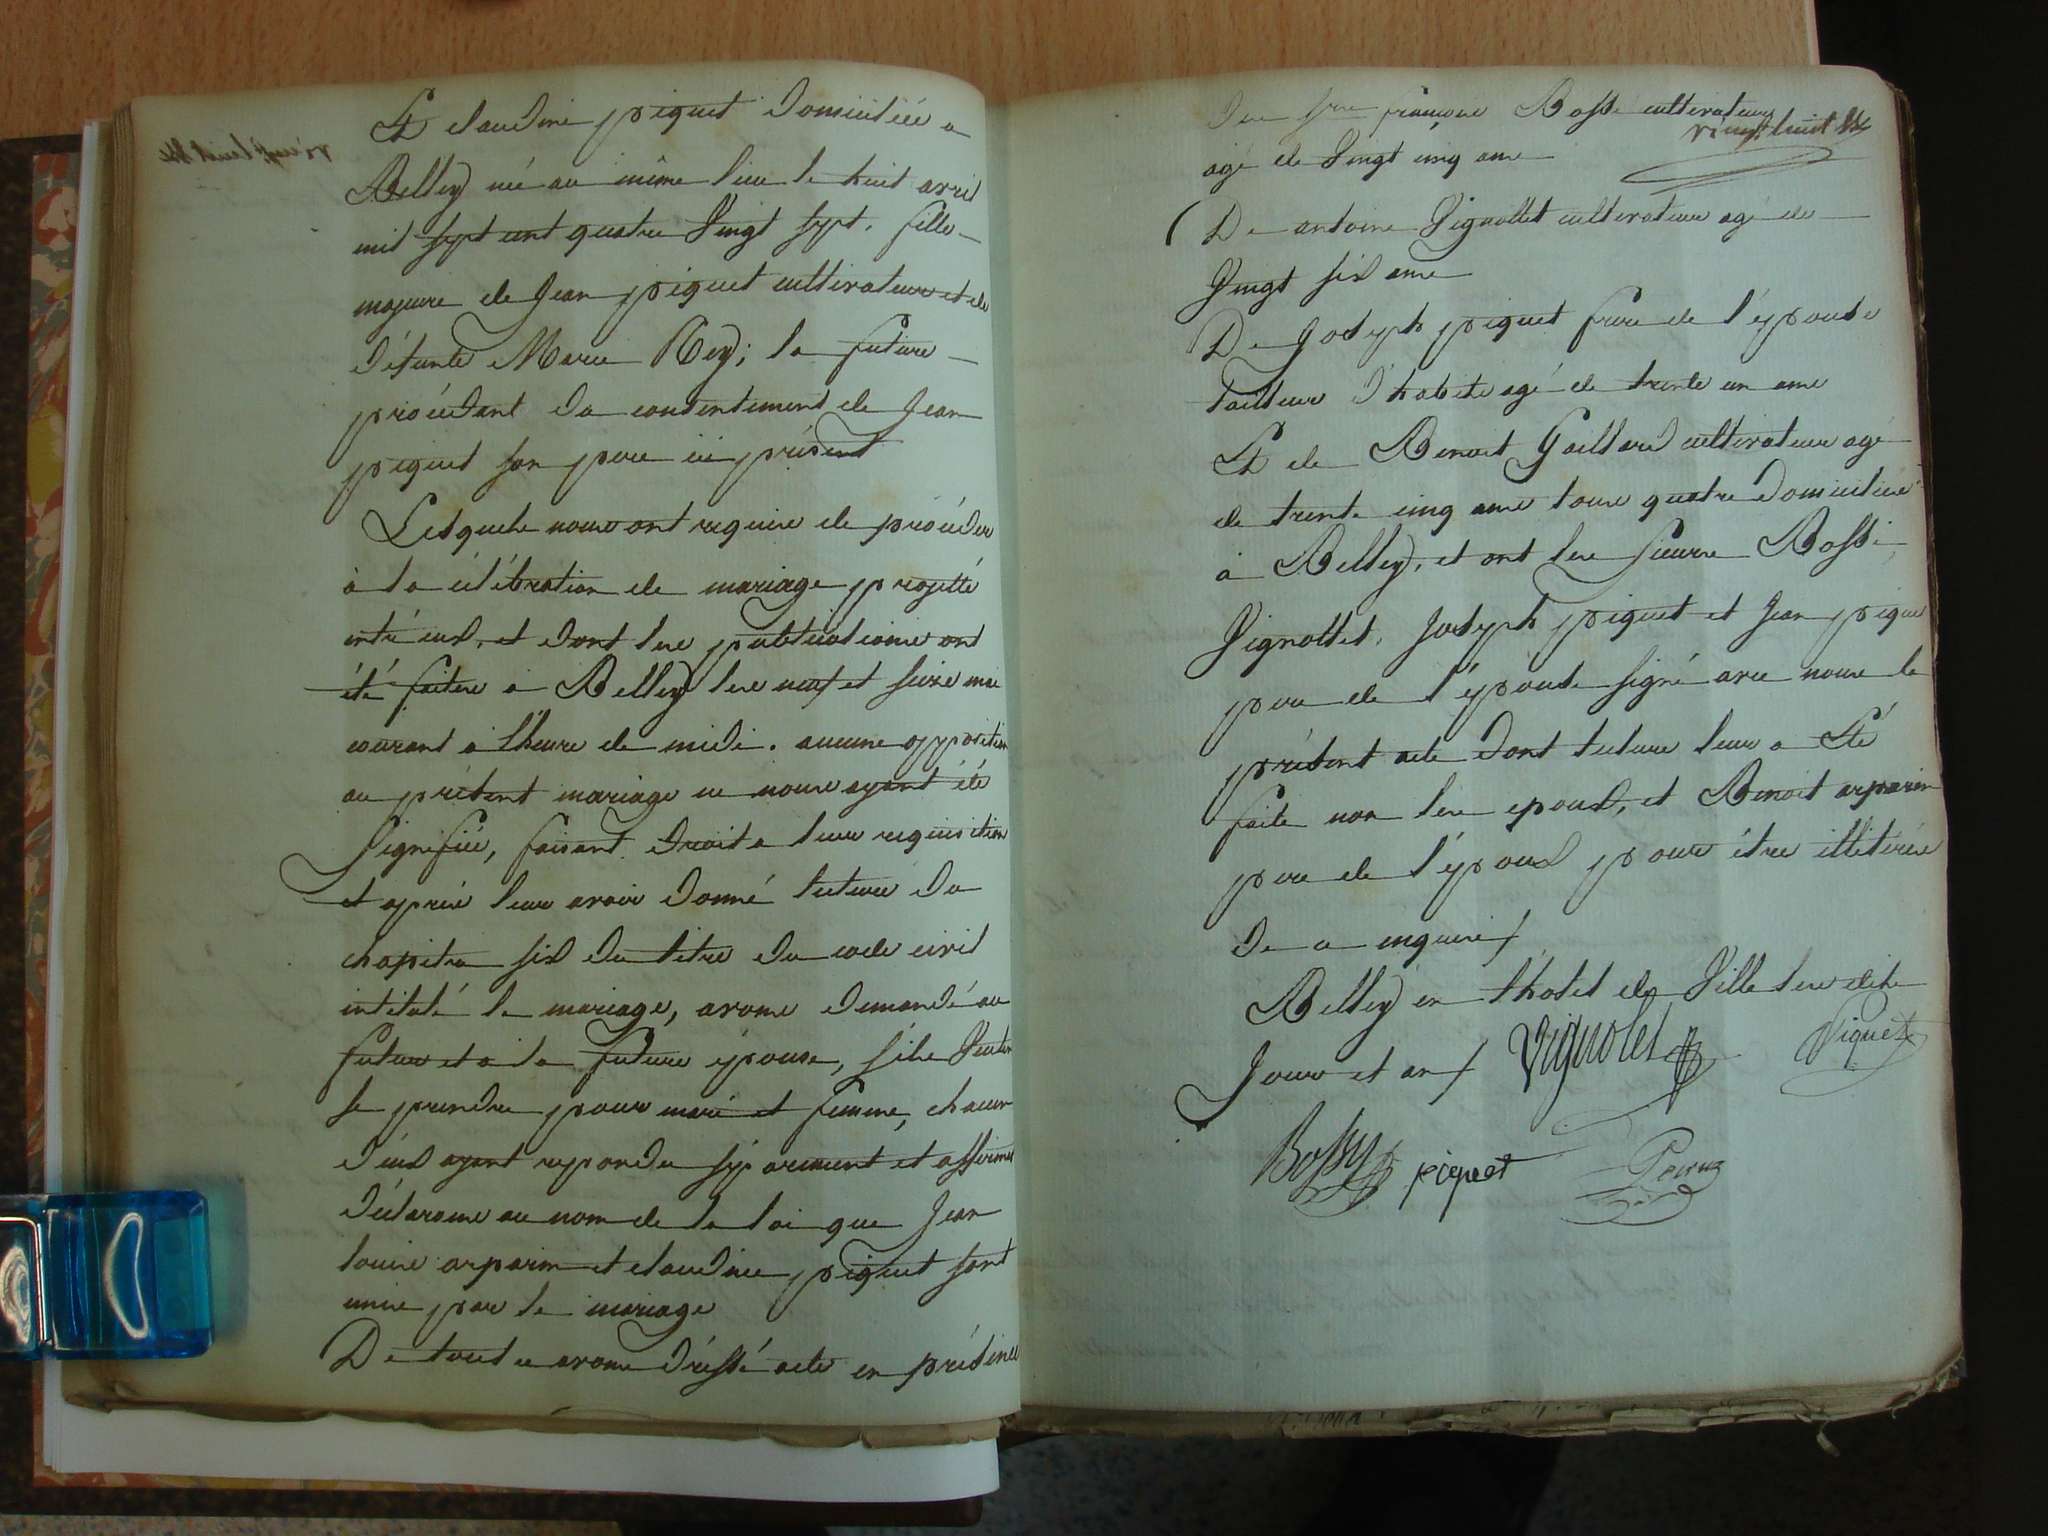 Et claudine piquet domiciliée a
Belley née au même lieu le huit avril
mil sept cent quatre Vingt sept, fille
majeure de Jean piquet cultivateur et de
défunte Marie Rey; la future
procédant du consentement de Jean
piquet son pere ici présent
Lesquels nous ont requis de procéder
à la célébration de mariage projetté
entr'eux, et dont les publications ont
été faites a Belley les neuf et seize mai
courant à l'heure de midi. aucune opposition
au présent mariage ne nous ayant été
Signifiée, faisant droit a leur requisition
et après leur avoir donné lecture du
chapitre six du titre du code civil
intitulé le mariage, avons demandé au
futur et a la future épouse, s'ils Veulent
se prendre pour mari et femme, chacun
d'eux ayant repondu séparement et affirmé
déclarons au nom de la loi que Jean
louis arparin et claudine piquet sont
unis par le mariage
De tout ce avons dréssé acte en présence
vingt huit
Des françois Bossi cultivateur
agé de Vingt cinq ans
De antoine Vignollet cultivateur agé de
Vingt six ans
De Joseph piquet frere de l'épouse
tailleur d'habits agé de trente un ans
Et de Benoit Gaillard cultivateur agé
de trente cinq ans tous quatre domiciliés
à Belley, et ont les sieurs Bossi,
Vignollet, Joseph piquet et Jean pique
pere de l'épouse signé avec nous le
présent acte dont lecture leur a Eté
faite non les epoux, et Benoit arparin
pere de l'époux pour être illitérés
De ce enquis
Belley en l'hotel de Ville les dits
Jour et an Vignolet Piquet
Bossy piquet